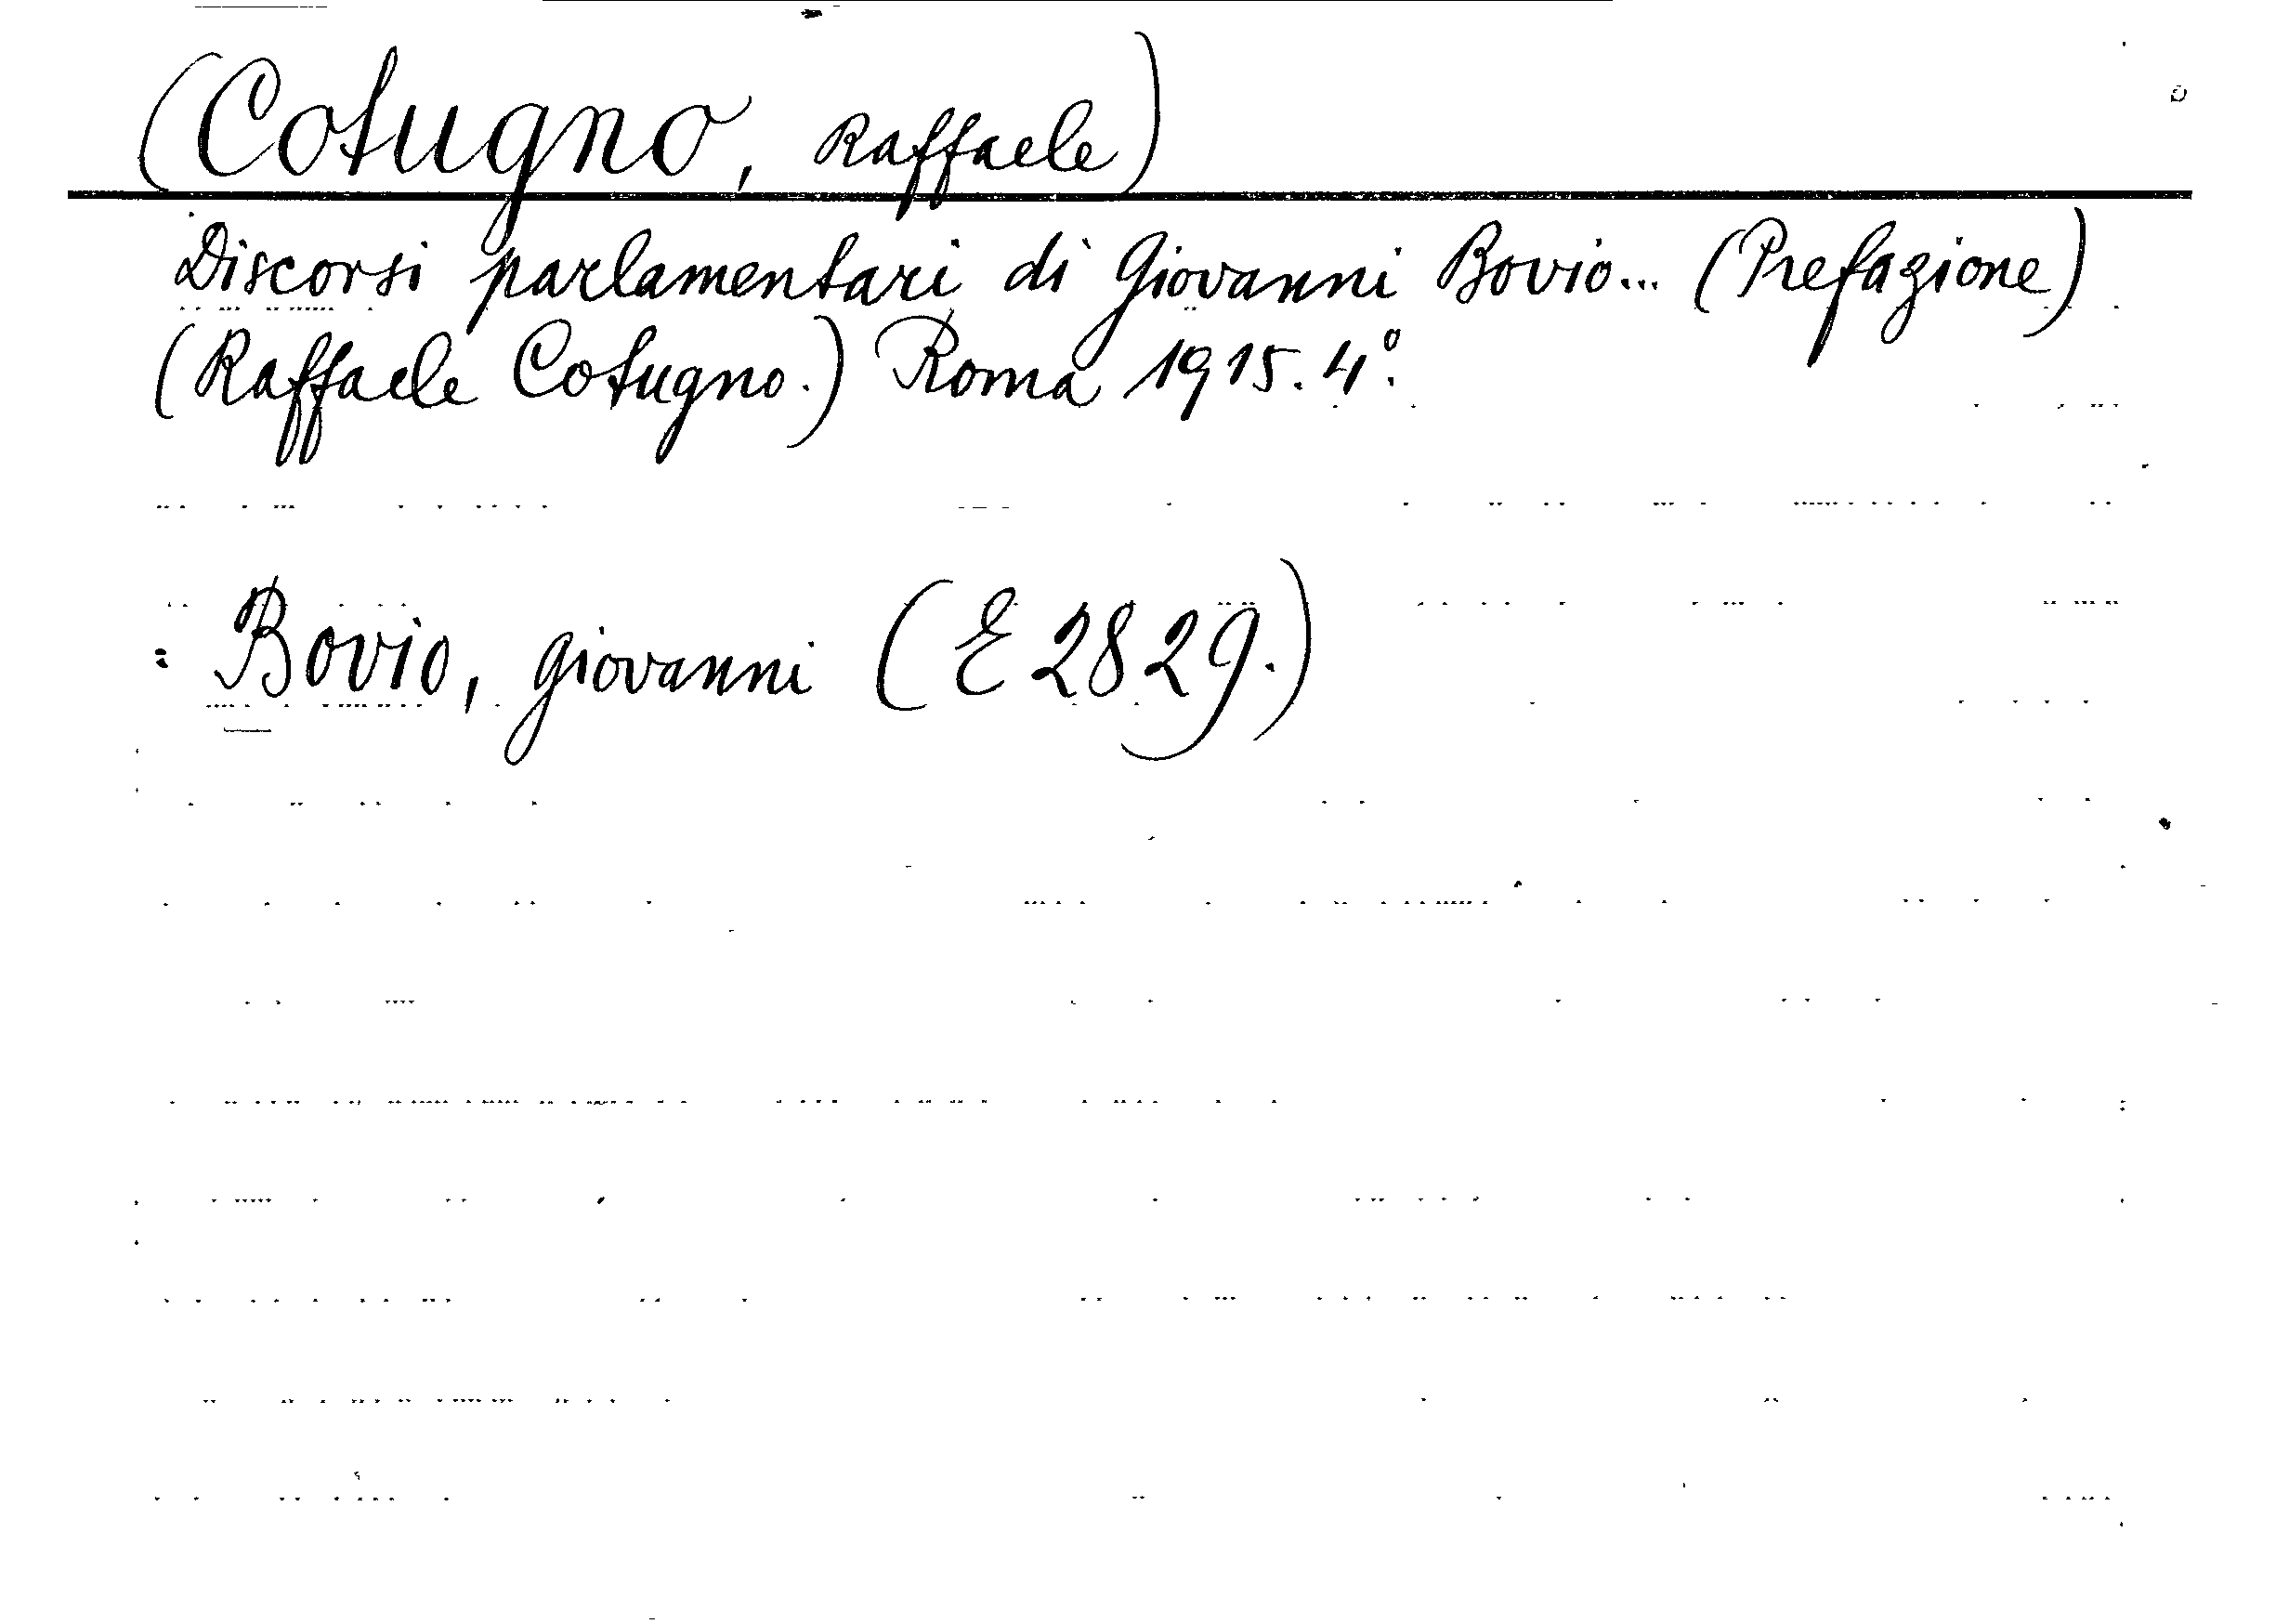 (Cotugno, Raffaele)
Discorsi parlamentari di Giovanni Bovio... (Prefazione)
(Raffaele Cotugno.) Roma 1915. 4°.
= Bovio, Giovanni (E 2829.)